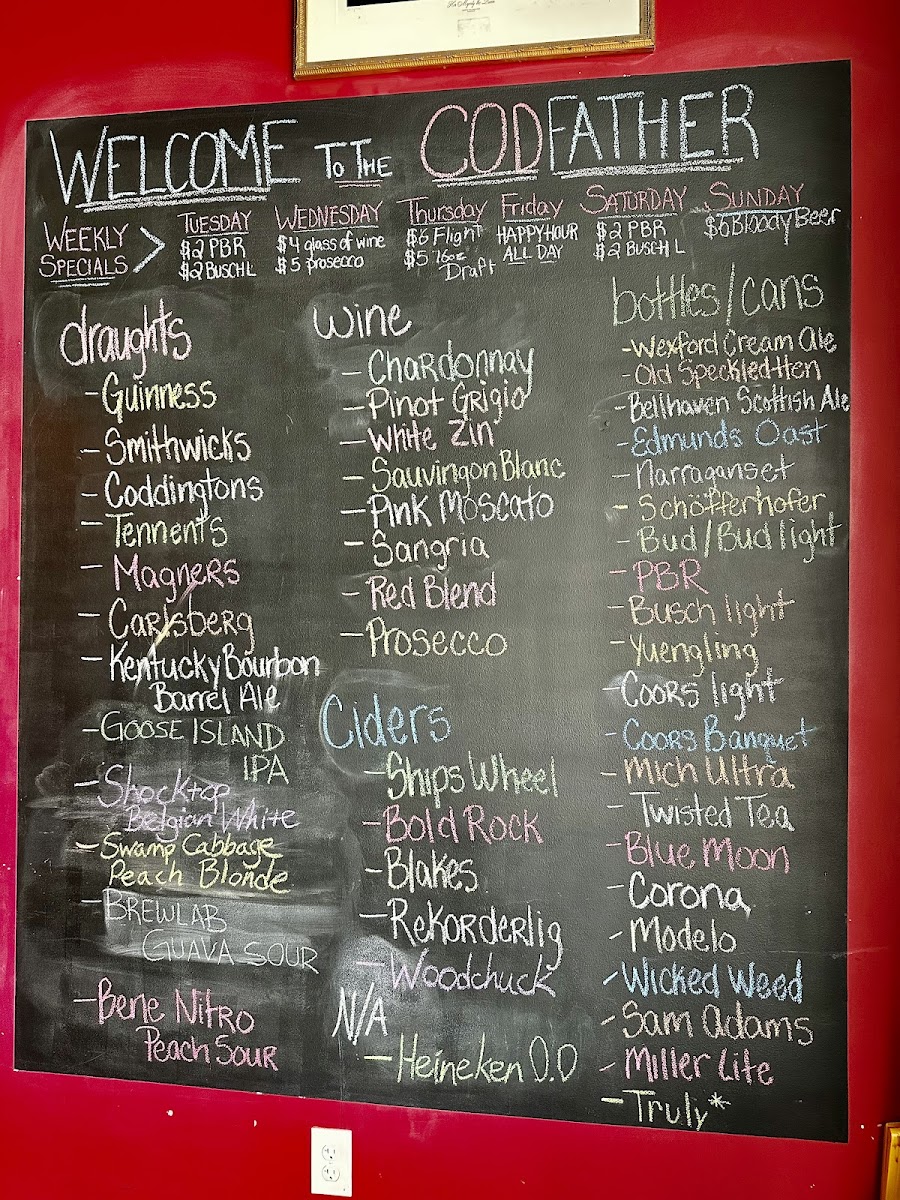 WELCOME TO THE CODFATHER
WEEKLY
SPECIALS >
TUESDAY
$2 PBR
$2 BUSCH L
WEDNESDAY
$4 glass of wine
$5 prosecco
Thursday
$6 Flight
$5 16oz
Draft
Friday
HAPPY HOUR
ALL DAY
SATURDAY
$2 PBR
$2 BUSCH L
SUNDAY
$6 Bloody Beer
draughts
- Guinness
- Smithwicks
- Coddingtons
- Tennent's
- Magners
- Carlsberg
- Kentucky Bourbon
Barrel Ale
- GOOSE ISLAND
IPA
- Shocktop
Belgian White
- Swamp Cabbage
Peach Blonde
- BREWLAB
GUAVA SOUR
- Bene Nitro
Peach Sour
wine
- Chardonnay
- Pinot Grigio
- White Zin
- Sauvingon Blanc
- Pink Moscato
- Sangria
- Red Blend
- Prosecco
Ciders
- Ships Wheel
- Bold Rock
- Blakes
- Rekorderlig
- Woodchuck
N/A
- Heineken 0.0
bottles/cans
- Wexford Cream Ale
- Old Speckled Hen
- Bellhaven Scottish Ale
- Edmunds Oast
- Narraganset
- Schöfferhofer
- Bud/Bud light
- PBR
- Busch light
- Yuengling
- Coors light
- Coors Banquet
- Mich Ultra
- Twisted Tea
- Blue Moon
- Corona
- Modelo
- Wicked Weed
- Sam Adams
- Miller Lite
- Truly*